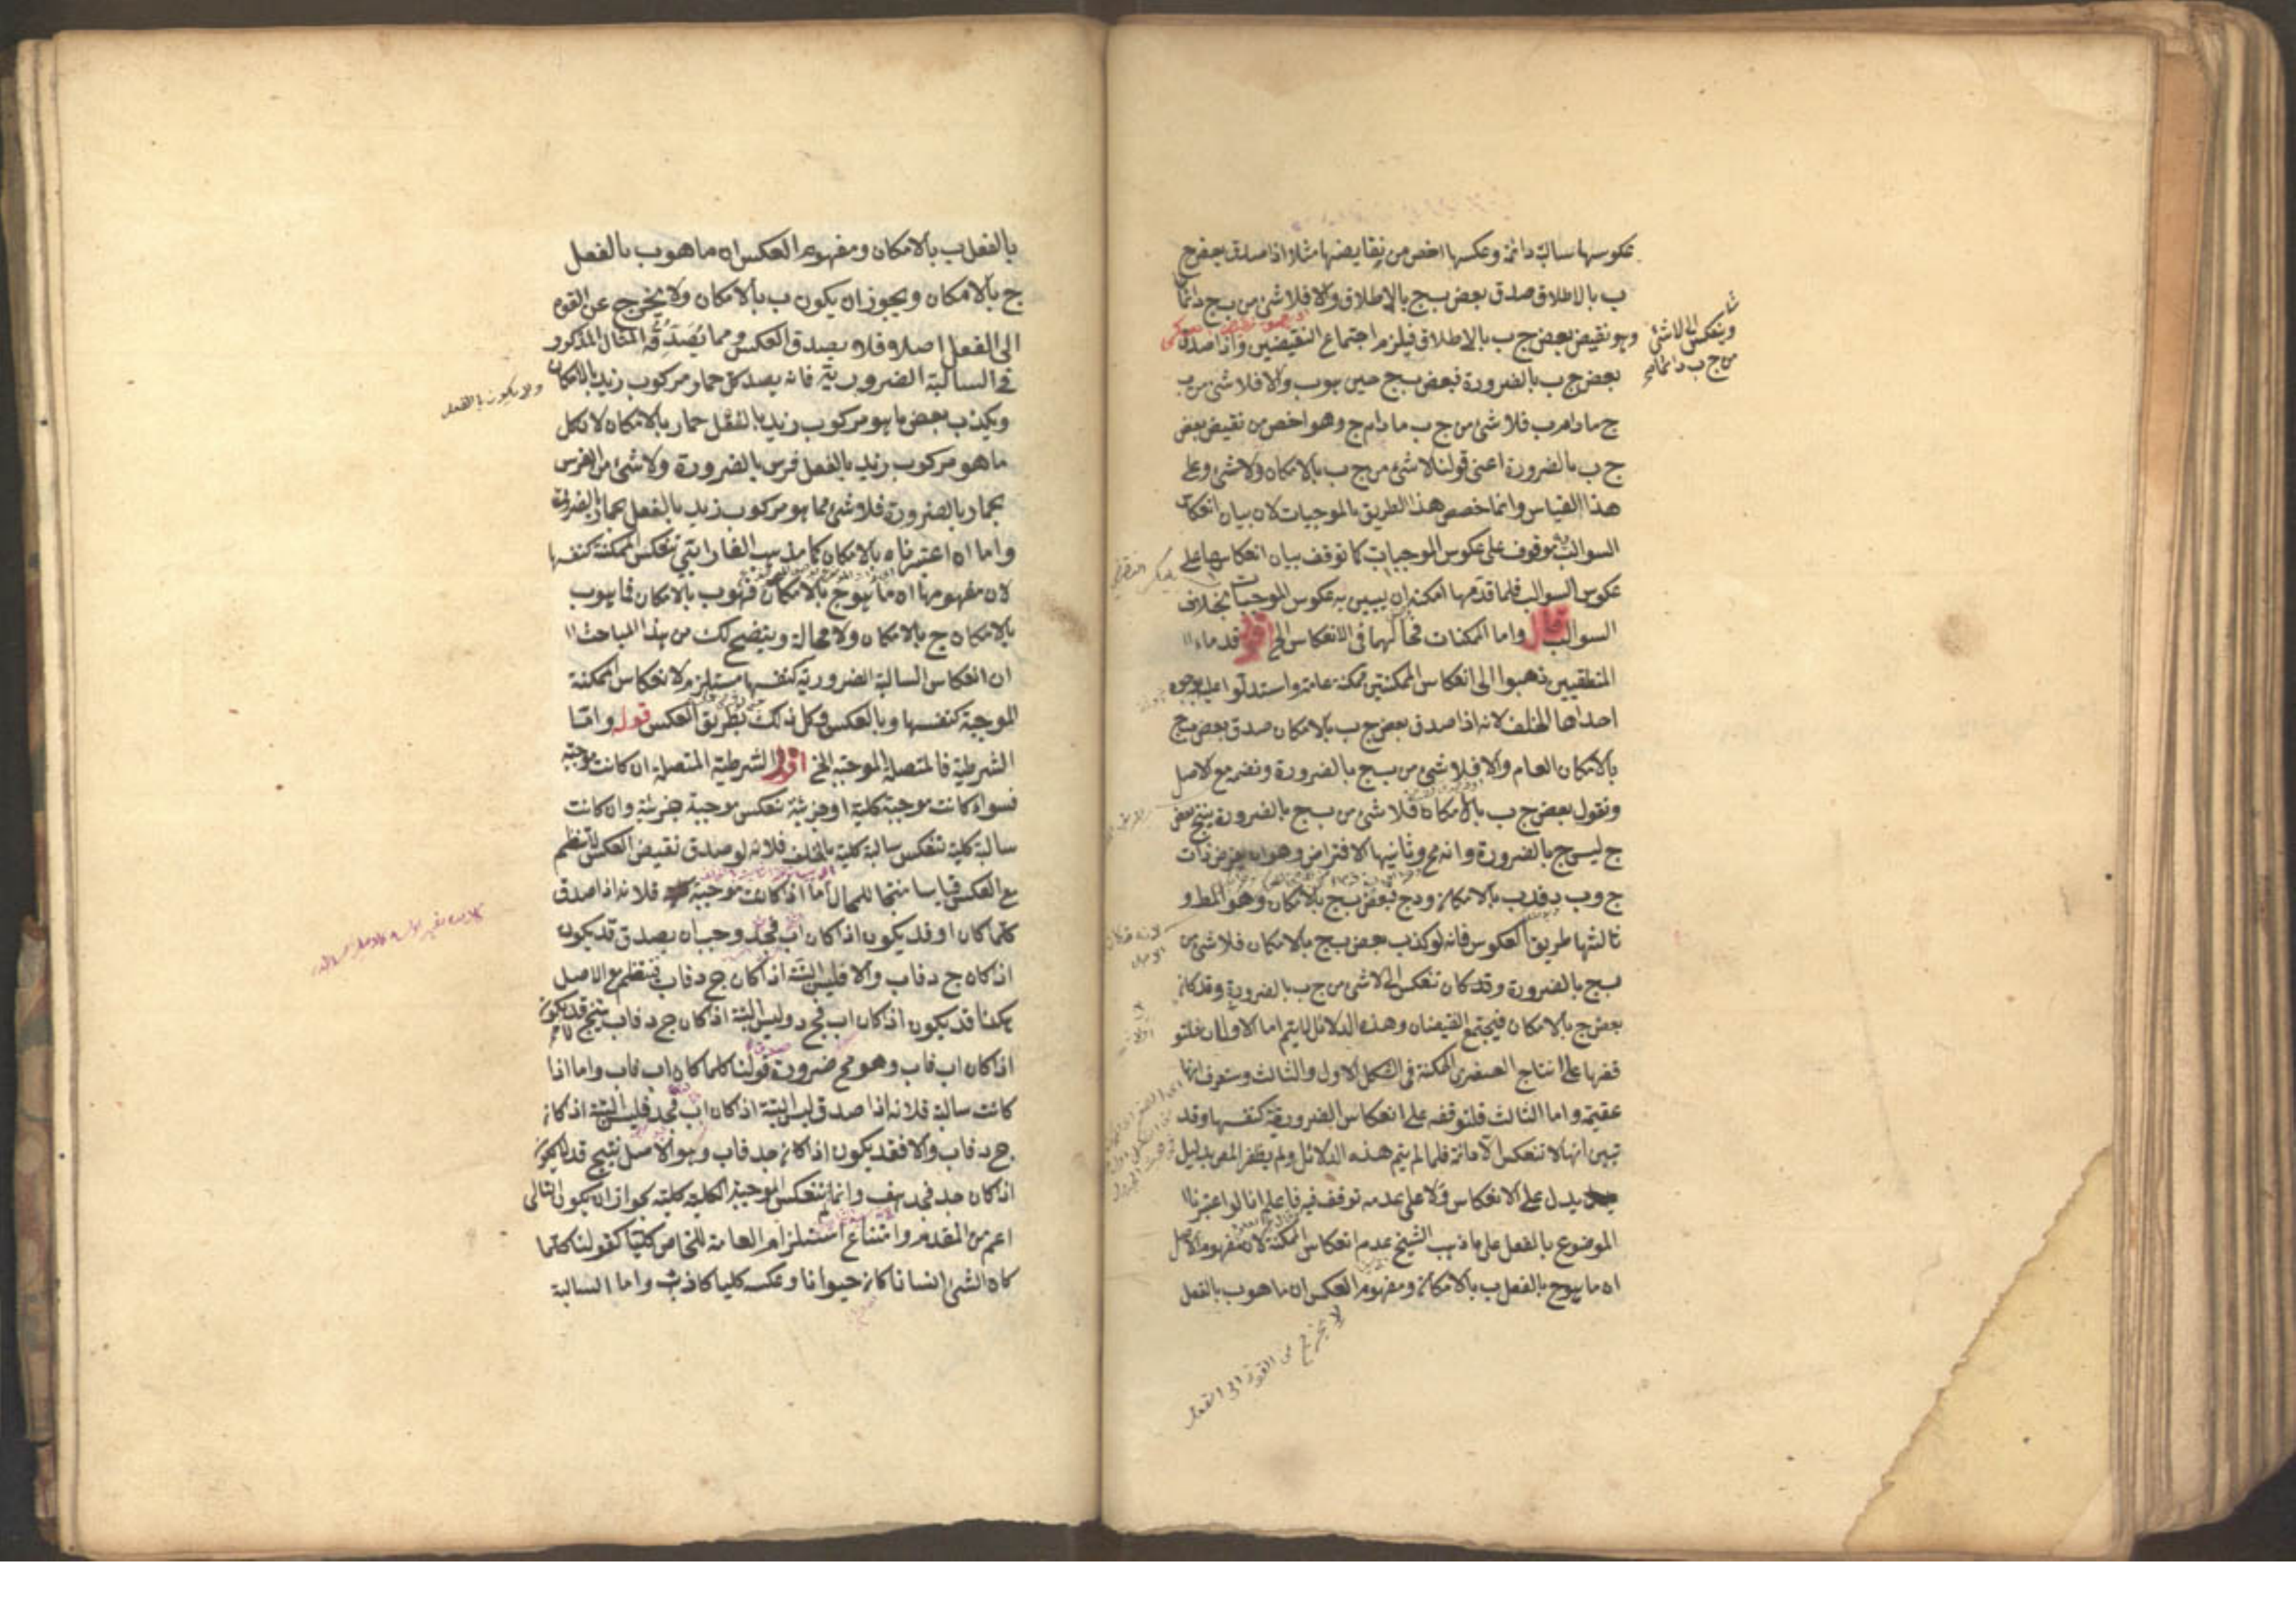 عكوسها سالبة دائمة وعكسها اخص من نقايضها مثلا اذا صدق بعض ج
ب بالاطلاق صدق بعض ب ج بالاطلاق والا فلا شئ من ب ج دائما
وينعكس الى لا شئ
من ج ب دائما
وهو نقيض بعض ج ب بالاطلاق فيلزم اجتماع النقيضين واذا صدق
بعض ج ب بالضرورة فبعض ب ج حين هو ب والا فلا شئ من ب
ج ما دام ب فلا شئ من ج ب ما دام ج وهو اخص من نقيض بعض
ج ب بالضرورة اعنى قولنا لا شئ من ج ب بالامكان ولا شئ وعلى
هذا القياس وانما خصص هذا الطريق بالموجبات لان بيان انعكاس
السوالب موقوف على عكوس الموجبات كما توقف بيان انعكاسها على
عكوس السوالب فلما قدمها امكنه ان يبين به عكوس الموجبات بخلاف
السوالب قال واما الممكنات فحالهما فى الانعكاس الخ اقول قدماء ال
المنطقيين ذهبوا الى انعكاس الممكنتين ممكنة عامة واستدلوا عليه بوجوه
احداها الخلف لانه اذا صدق بعض ج ب بالامكان صدق بعض ب ج
بالامكان العام والا فلا شئ من ب ج بالضرورة ونضم مع الاصل
ونقول بعض ج ب بالامكان فلا شئ من ب ج بالضرورة ينتج بعض
ج ليس ج بالضرورة وانه مح وثانيها الافتراض وهو ان يفرض ذات
ج وب د فد ب بالامكان ود ج فبعض ب ج بالامكان وهو المط و
ثالثها طريق العكوس فانه لو كذب بعض ب ج بالامكان فلا شئ من
ب ج بالضرورة وقد كان تنعكس الى لا شئ من ج ب بالضرورة وقد كان
بعض ج ب بالامكان فيجتمع النقيضان وهذه الدلائل لا يتم اما الاولان فلتو
قفهما على انتاج الصغرى الممكنة فى الشكل الاول والثالث وستعرف انها
عقيمة واما الثالث فلتوقفه على انعكاس الضرورية كنفسها وقد
تبين انها لا تنعكس الا دائمة فلما لم يتم هذه الدلائل ولم يظفر المص بدليل
يدل على الانعكاس ولا على عدمه توقف فيه فاعلم انا لو اعتبرنا ال
الموضوع بالفعل على ما ذهب الشيخ عدم انعكاس الممكنة لان مفهوم الاصل
ان ما هو ج بالفعل ب بالامكان ومفهوم العكس ان ما هو ب بالفعل
لا يخرج من القوة الى الفعل
بالفعل ب بالامكان ومفهوم العكس ان ما هو ب بالفعل
ج بالامكان ويجوز ان يكون ب بالامكان ولا يخرج عن القوة
الى الفعل اصلا فلا يصدق العكس ومما يصدقه المثال المذكور
فى السالبة الضرورية فانه يصدق كل حمار مركوب زيد بالامكان
ولا يكون بالفعل
ويكذب بعض ما هو مركوب زيد بالفعل حمار بالامكان لان كل
ما هو مركوب زيد بالفعل فرس بالضرورة ولا شئ من الفرس
بحمار بالضرورة فلا شئ مما هو مركوب زيد بالفعل بحمار بالضرورة
واما ان اعتبرناه بالامكان كما مذهب الفارابى تنعكس الممكنة كنفسها
لان مفهومها ان ما هو ج بالامكان فهو ب بالامكان فما هو ب
بالامكان ج بالامكان ولا محالة ويتضح لك من هذا المباحث ال
ان انعكاس السالبة الضرورية كنفسها مستلزم لانعكاس الممكنة
الموجبة كنفسها وبالعكس وكل ذلك بطريق العكس قوله واما
الشرطية فالمتصلة الموجبة الخ اقول الشرطية المتصلة ان كانت موجبة
فسواء كانت موجبة كلية او جزئية تنعكس موجبة جزئية وان كانت
سالبة كلية تنعكس سالبة كلية بالخلف فلانه لو صدق نقيض العكس لانتظم
مع العكس قياسا منتجا للمحال اما اذا كانت موجبة فلانه اذا صدق
كلما كان او قد يكون اذا كان اب فجد وجب ان يصدق قد يكون
اذا كان ج د فاب والا فليس البتة اذا كان ج د فاب فينتظم مع الاصل
هكذا قد يكون اذا كان اب فج د وليس البتة اذا كان ج د فاب ينتج قد لا يكون
اذا كان اب فاب وهو مح ضرورة قولنا كلما كان اب فاب واما اذا
كانت سالبة فلانه اذا صدق ليس البتة اذا كان اب فجد فليس البتة اذا كان
ج د فاب والا فقد يكون اذا كان جد فاب وهو الاصل ينتج قد لا يكون
اذا كان جد فجد هف وانما لم تنعكس الموجبة الكلية كلية لجواز ان يكون التالى
اعم من المقدم وامتناع استلزام العام للخاص كليا كقولنا كلما
كان الشئ انسانا كان حيوانا وعكسه كليا كاذب واما السالبة